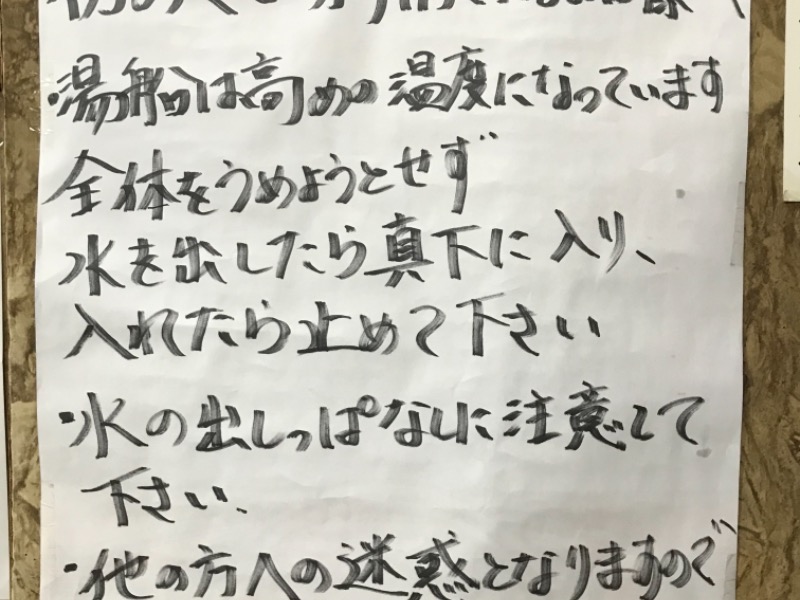 ・湯船は高めの温度になっています
全体をうめようとせず
水を出したら真下に入り、
入れたら止めて下さい
・水の出しっぱなしに注意して
下さい、
・他の方への迷惑となりますので